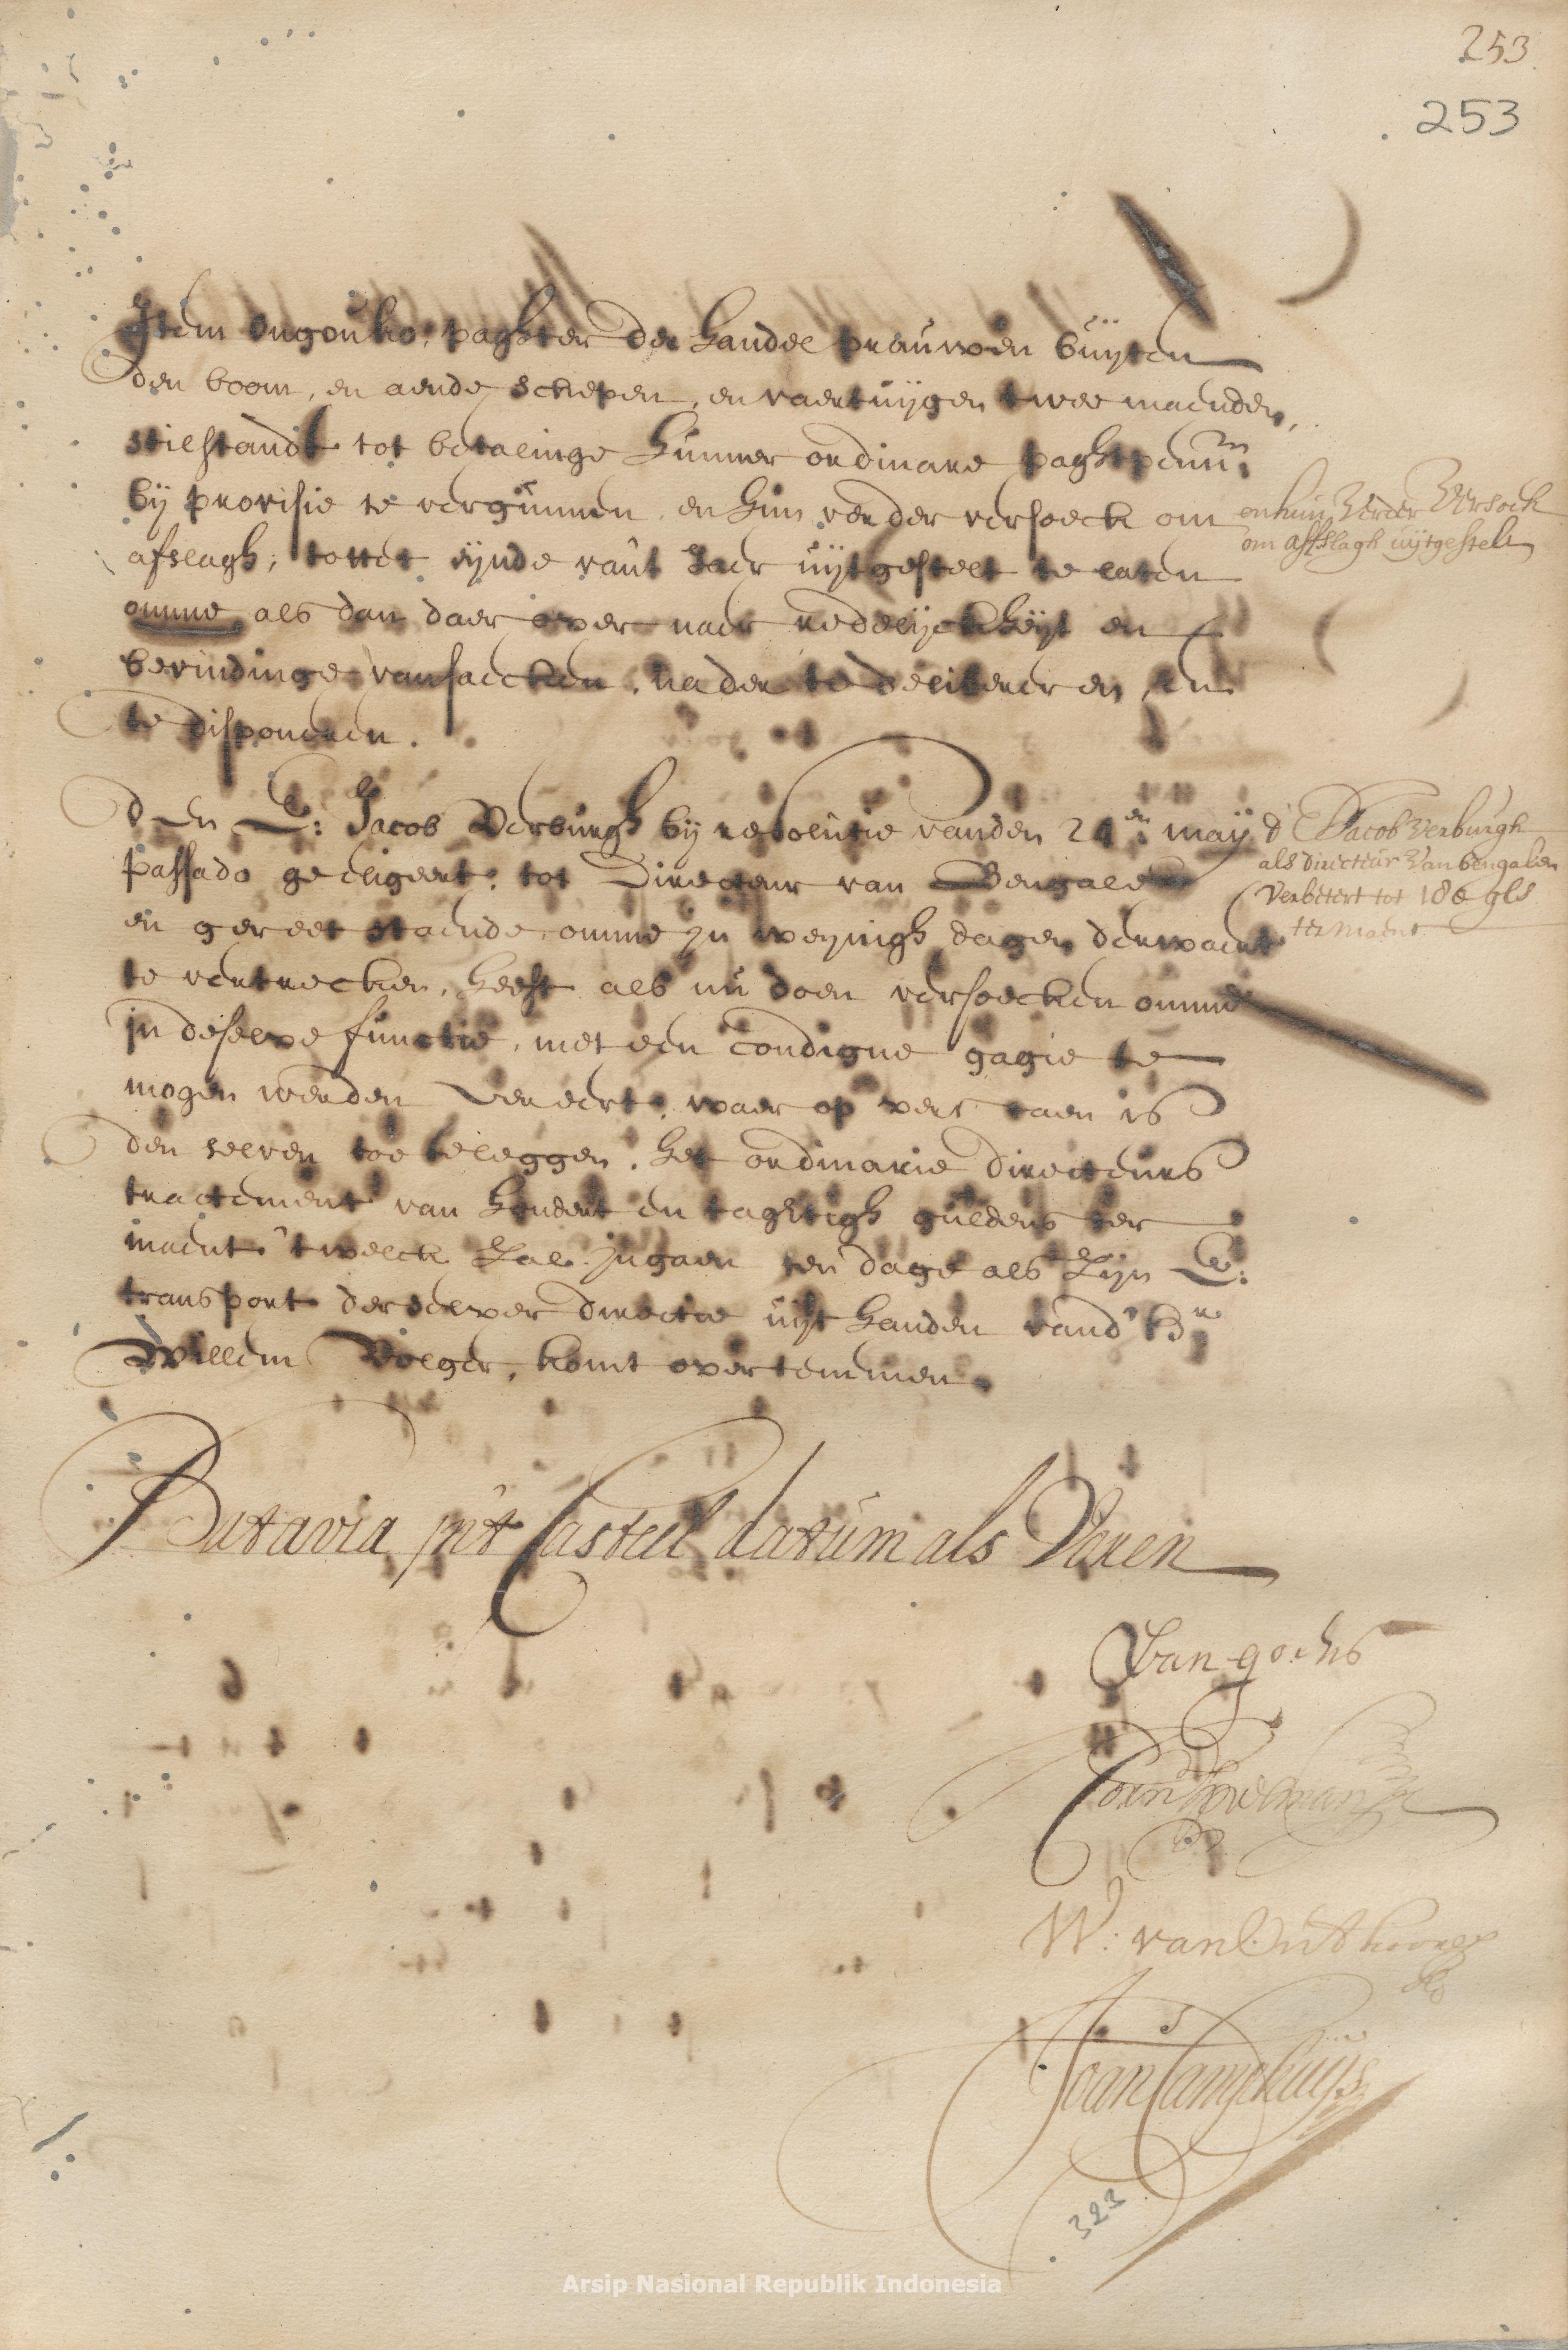 253
253
Item Ongouko, paghter der handel prauwen buijten
den boom, en aende schepen, en vaertuijgen twee maenden,
stilstandt tot betalinge hunner ordinare paghtpenn:
bij provisie te vergunnen, en hun verder versoeck om
afslagh, tottet eijnde van't Jaer uijtgestelt te laten
omme als dan daer over naer redelijckheijt en
bevindinge van saecken, nader te delibereren, en
te disponeren.
en hun verder versoek
om affslagh uijtgestelt
Den E: Jacob Verburgh bij resolutie vanden 24en maij
passado geeligeert, tot Directeur van Bengale
en gereet staende, omme in weijnigh dagen derwaert
te vertrecken, heeft als nu doen versoecken omme
in deselve functie, met een condigne gagie te
mogen werden vereert, waer op verstaen is
den selven toe te leggen, het ordinarie directeurs
tractement van hondert en taghtigh guldens ter
maent 't welck zal ingaen ten dage als zijn E:
transport derselver directie uijt handen vand' hr
Willem Volger, komt over te nemen.
d' E Jacob Verburgh
als directeur van bengalen
verbetert tot 180 gls
ter maent
Batavia in't Casteel datum als Voren
Van goens
Corn Speelman
W: van Outhoorn
Joan Camphuijs
323
Arsip Nasional Republik Indonesia